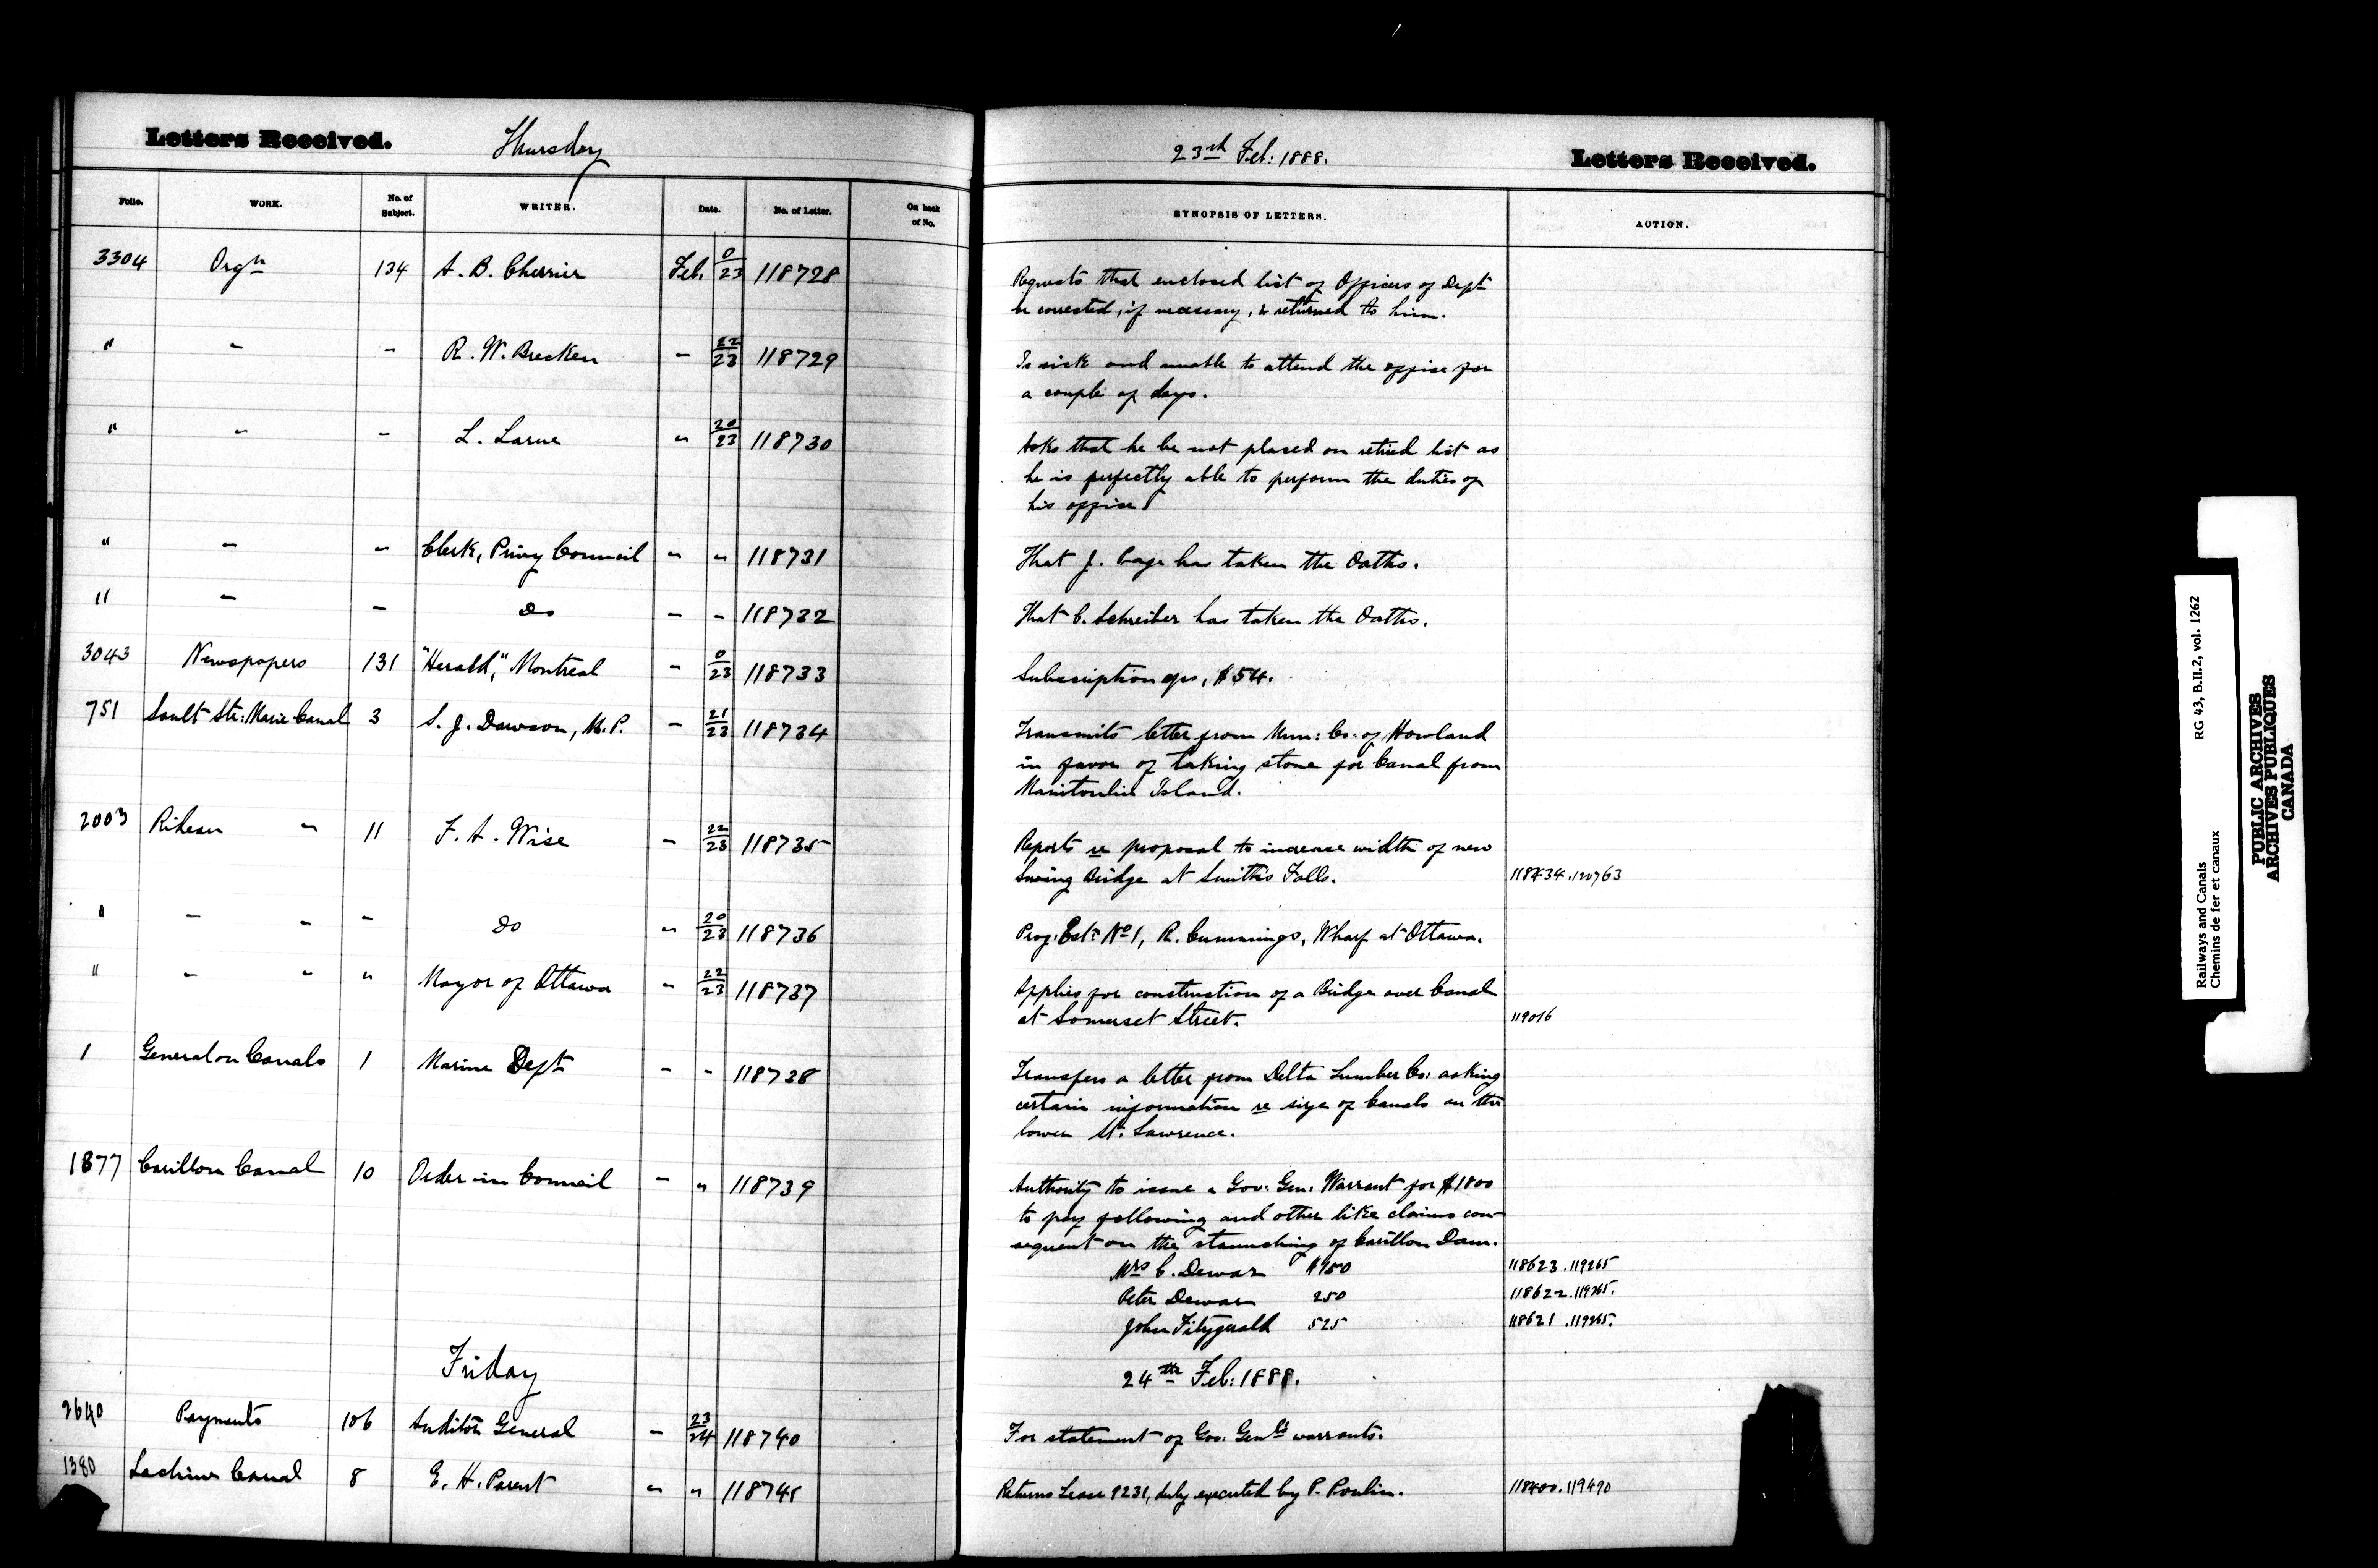 Letters Received.
Thursday
23rd Feb: 1888.
Letters Received.
Folio. WORK. No. of Subject. WRITER. Date. No. of Letter. On back of No. SYNOPSIS OF LETTERS. ACTION.
3304 Orgn 134 A. B. Cherrier Feb. 0/23 118728
Requests that enclosed list of Officers of Dept
be corrected, if necessary, & returned to him.
" " - R. W. Brecken - 22/23 118729
Is sick and unable to attend the office for
a couple of days.
" " - L. Larue " 20/23 118730
Asks that he be not placed on retired list as
he is perfectly able to perform the duties of
his office
" - " Clerk, Privy Council " " 118731 That J. Gage has taken the Oaths.
" - - Do - - 118732 That C. Schreiber has taken the Oaths.
3043 Newspapers 131 "Herald," Montreal - 0/23 118733 Subscription a/c, $54.
751 Sault Ste: Marie Canal 3 S. J. Dawson, M.P. - 21/23 118734
Transmits letter from Mun: Co: of Howland
in favor of taking stone for Canal from
Manitoulin Island.
2003 Rideau " 11 F. A. Wise - 22/23 118735
Reports re proposal to increase width of new
Swing Bridge at Smith's Falls. 118434.120763
" - - - Do " 20/23 118736 Prog: Est: No 1, R. Cummings, Wharf at Ottawa.
" - " " Mayor of Ottawa - 22/23 118737
Applies for construction of a Bridge over Canal
at Somerset Street. 119016
1 General on Canals 1 Marine Dept - - 118738
Transfers a letter from Delta Lumber Co: asking
certain information re size of Canals on the
lower St. Lawrence.
1877 Carillon Canal 10 Order in Council - " 118739
Authority to issue a Gov: Gen: Warrant for $1800
to pay following and other like claims con-
sequent on the staunching of Carillon Dam.
Mrs C. Dewar $150 118623.119265
Peter Dewar 250 118622.119265.
John Fitzgerald 525 118621.119265.
Friday
24th Feb: 1888.
2640 Payments 106 Auditor General - 23/24 118740 For statement of Gov: Genl's warrants.
1380 Lachine Canal 8 E. H. Parent " " 118741 Returns Lease 9231, duly executed by P. Poulin. 118400.119490
RG 43, B.II.2, vol. 1262
Railways and Canals
Chemins de fer et canaux
PUBLIC ARCHIVES
ARCHIVES PUBLIQUES
CANADA